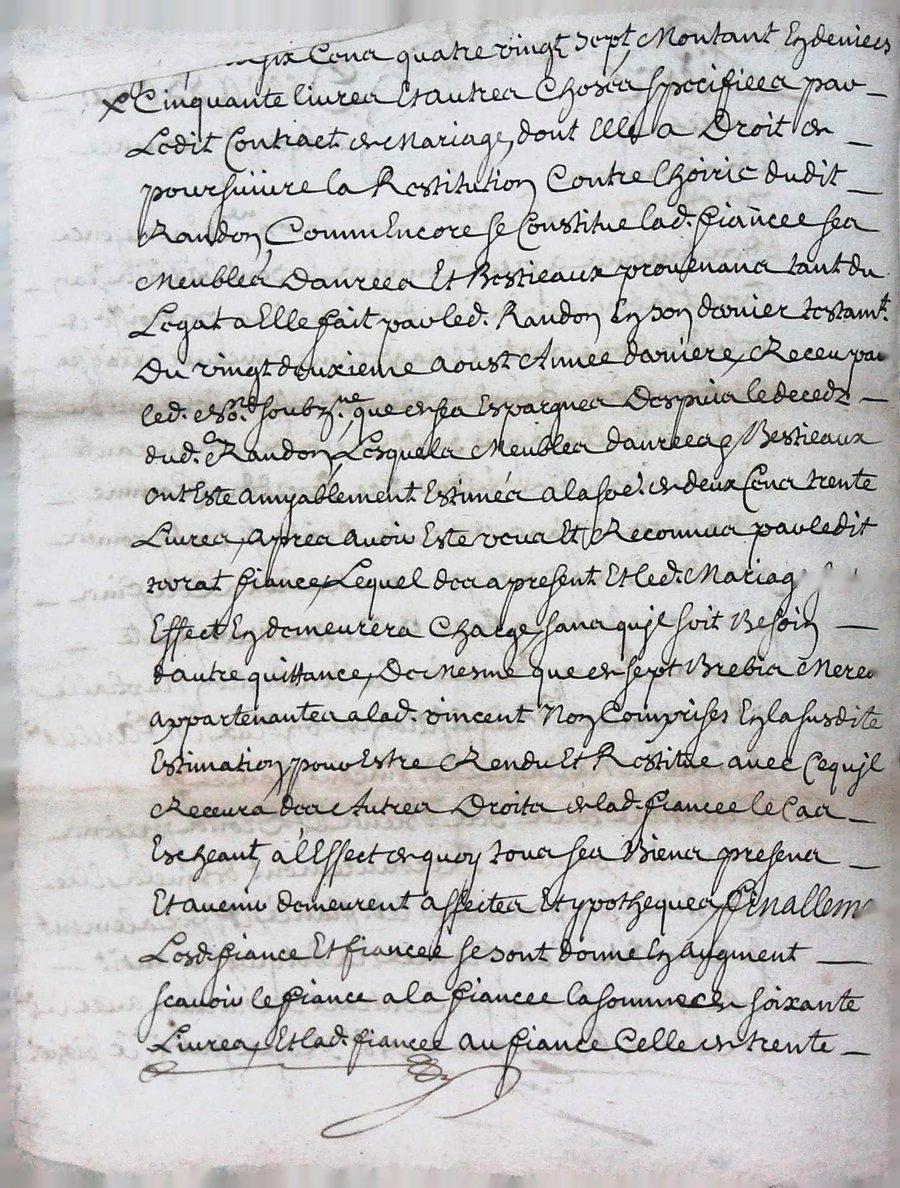 six Cens quatre vingt sept, Montant En deniers
x Cinquante livres Et autres Choses specifiees par
Ledit Contract de Mariage, dont Elle a Droit de
poursuiure la Restitution Contre lhoirie dudit
Randon, Comm Encore se Constitue lad. fiancee ses
Meubles, Danrees Et Bestieaux prouenans tant du
Legat a Elle fait par led. Randon En son dernier testamt.
Du vingt deuxieme Aoust Année derniere, Receu par
led. soubzne. que de ses Espargnes Despuis le decedz
dud. Randon, Lesquels Meubles danrees, Bestieaux
ont Este amyablement Estimés a la so.e de deux Cens trente
Liures, apres auoir Este veus Et Reconnus par ledit
fiance, Lequel des a present Et led. Mariag
Effect En demeurera Charge, sans qujl soit Besoin
dautre quittance, De Mesme que de sept Brebis Meres
appartenantes a lad. vincent Non Comprises En la susdite
Estimation, pour Estre Rendu Et Restitue auec Ce qujl
Receura des Autres Droits de lad. fiancee le Cas
Escheant, a l'Effect de quoy tous ses Biens presens
Et auenir demeurent affectes Et ypotheques, finallemt
Lesd. fiance Et fiancee se sont donne En augment
scauoir le fiance a la fiancee la somme de soixante
Liures, Et lad. fiancee au fiance Celle de trente